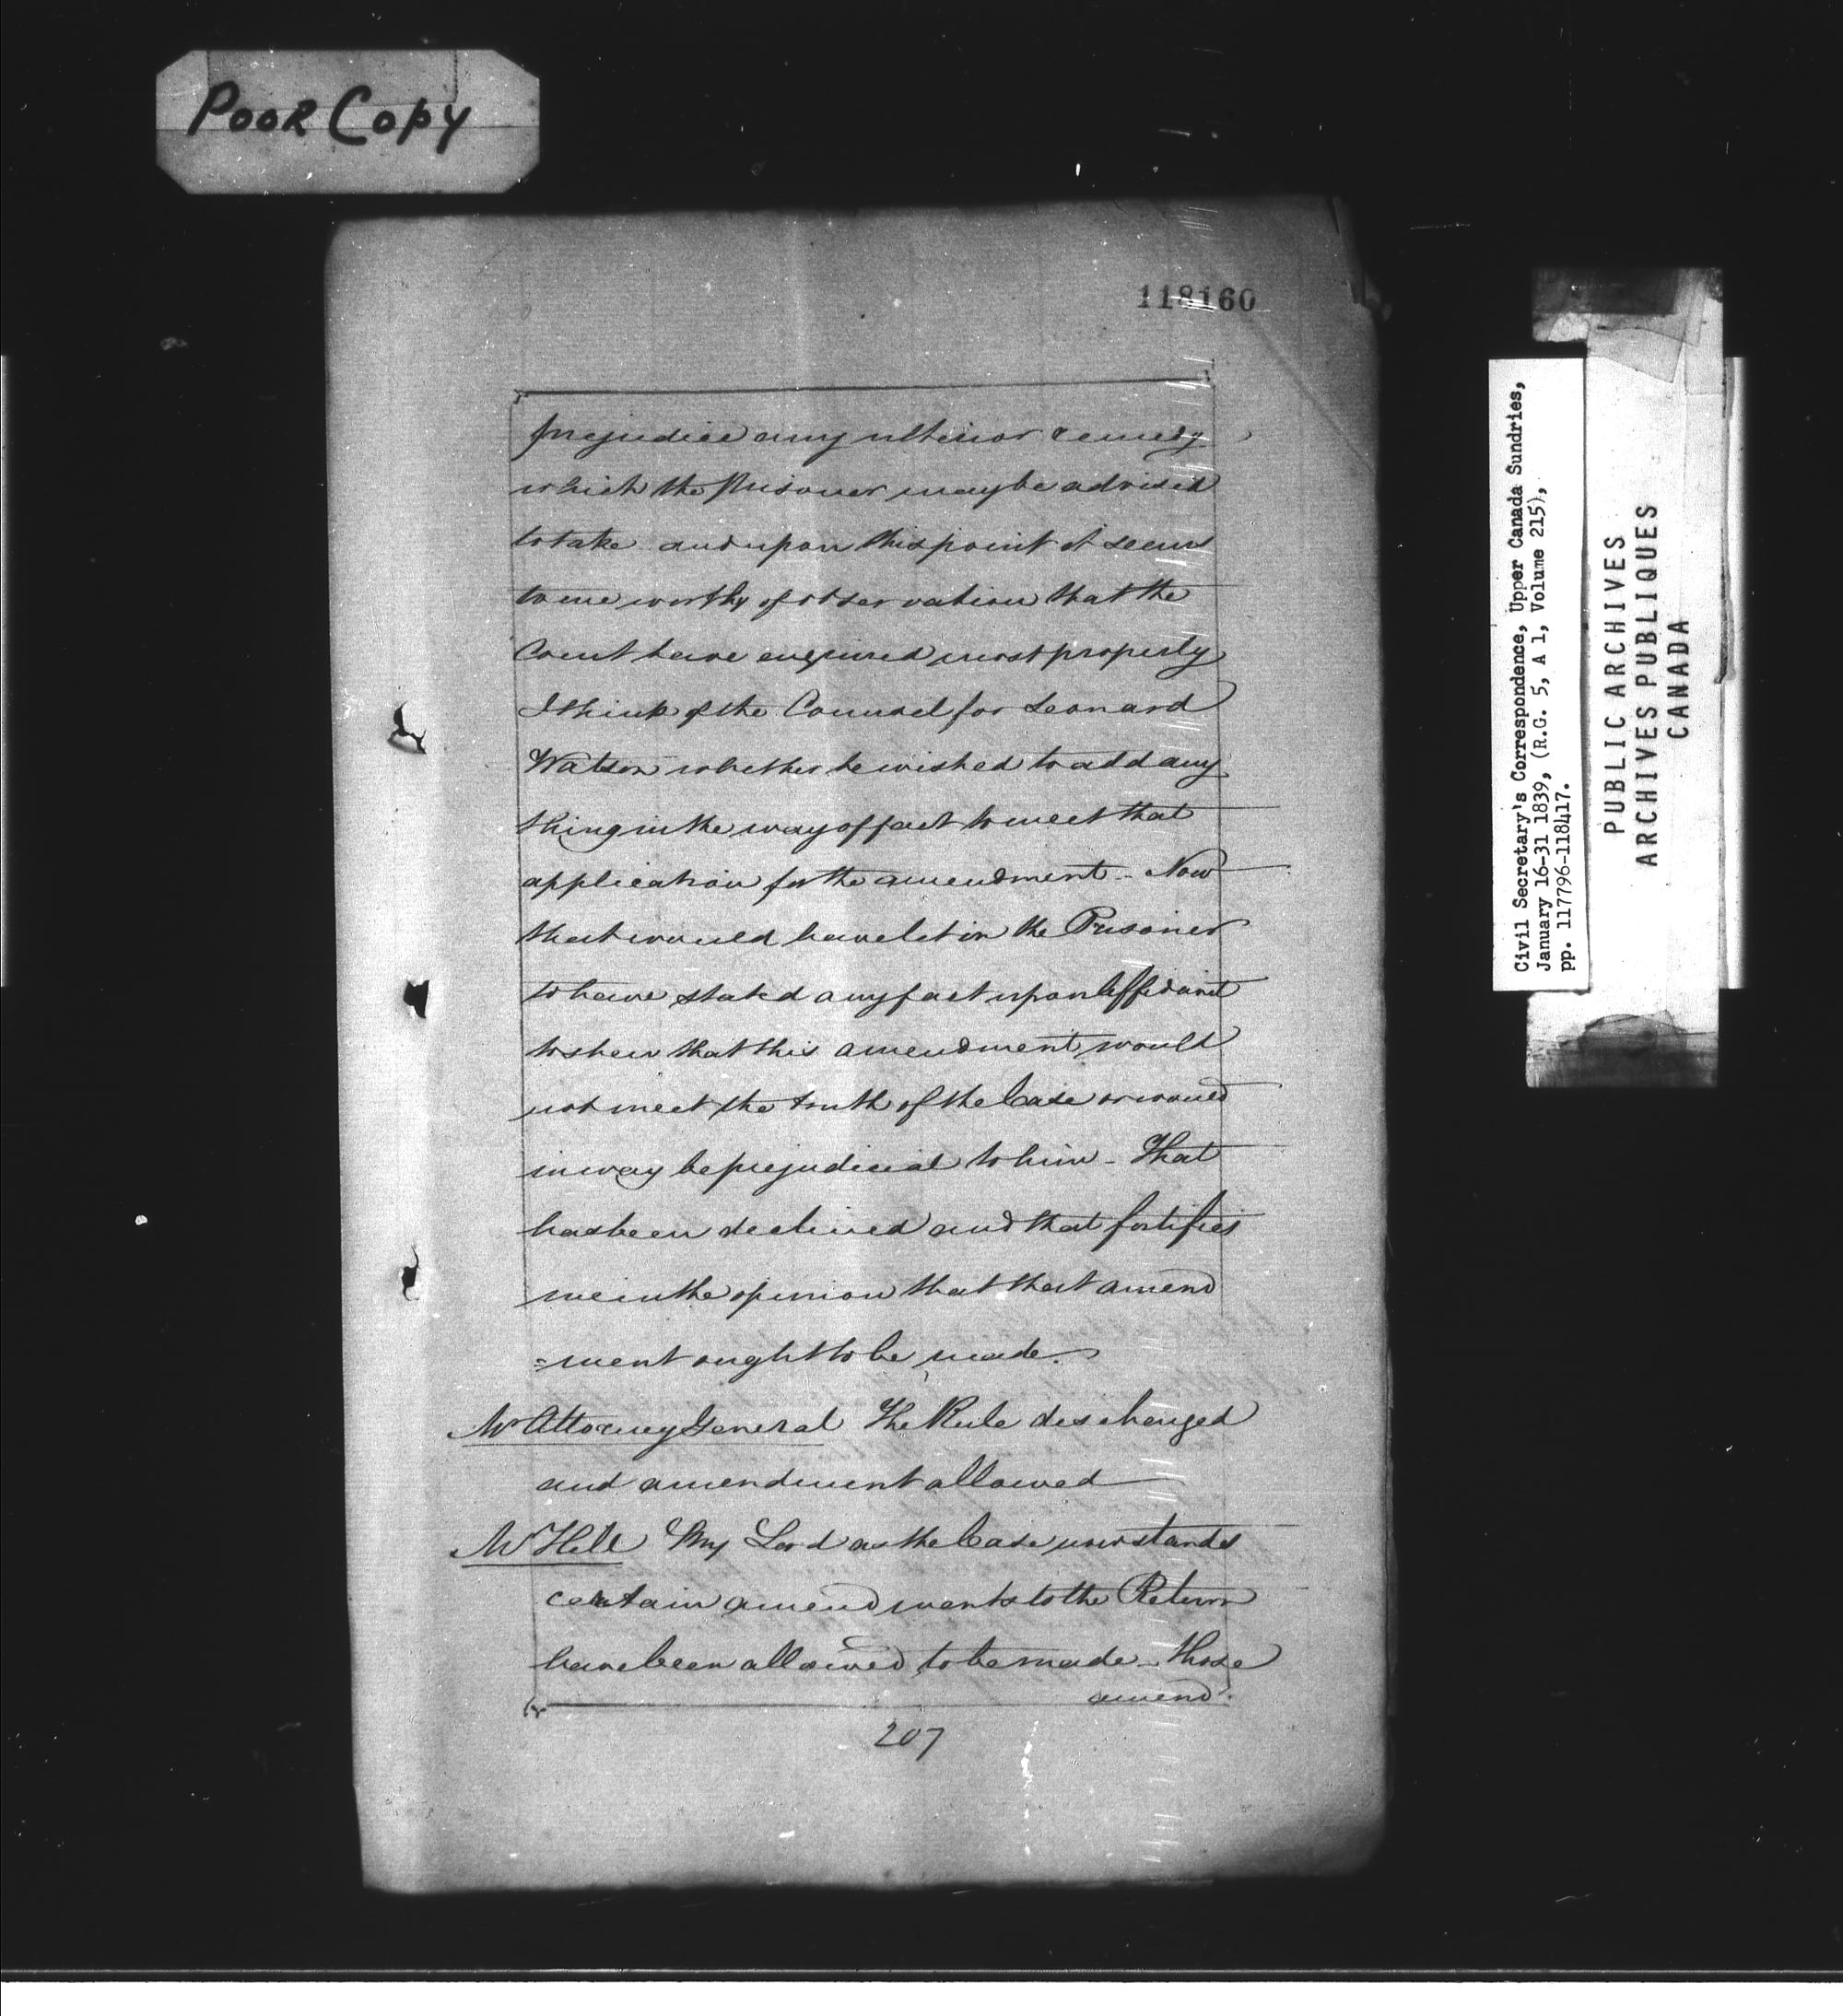 Poor Copy
118160
prejudice any ulterior remedy
which the Prisoner may be advised
to take and upon this point it seems
to me worthy of observation that the
Court have enquired most properly
I think of the Counsel for Leonard
Watson whether he wished to add any
thing in the way of fact to meet that
application for the amendment - Now
that would have let in the Prisoner
to have stated any fact upon Affidavit
to shew that this amendment would
not meet the truth of the Case or would
in way be prejudicial to him - That
has been declined and that fortifies
me in the opinion that that amend
=ment ought to be made.
Mr Attorney General The Rule discharged
and amendment allowed
Mr Hill My Lord as the Case now stands
certain amendments to the Return
have been allowed to be made - those
amend
207
Civil Secretary's Correspondence, Upper Canada Sundries,
January 16-31 1839, (R.G. 5, A 1, Volume 215),
pp. 117796-118417.
PUBLIC ARCHIVES
ARCHIVES PUBLIQUES
CANADA